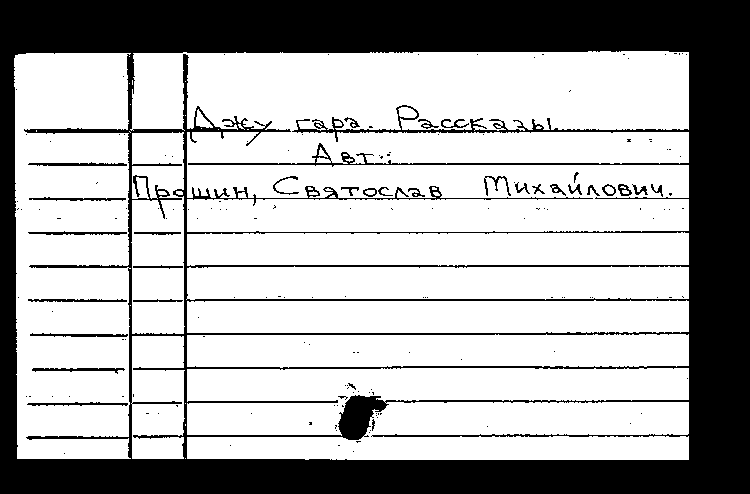 Джу гара. Рассказы.
Авт.:
Прошин, Святослав Михайлович.